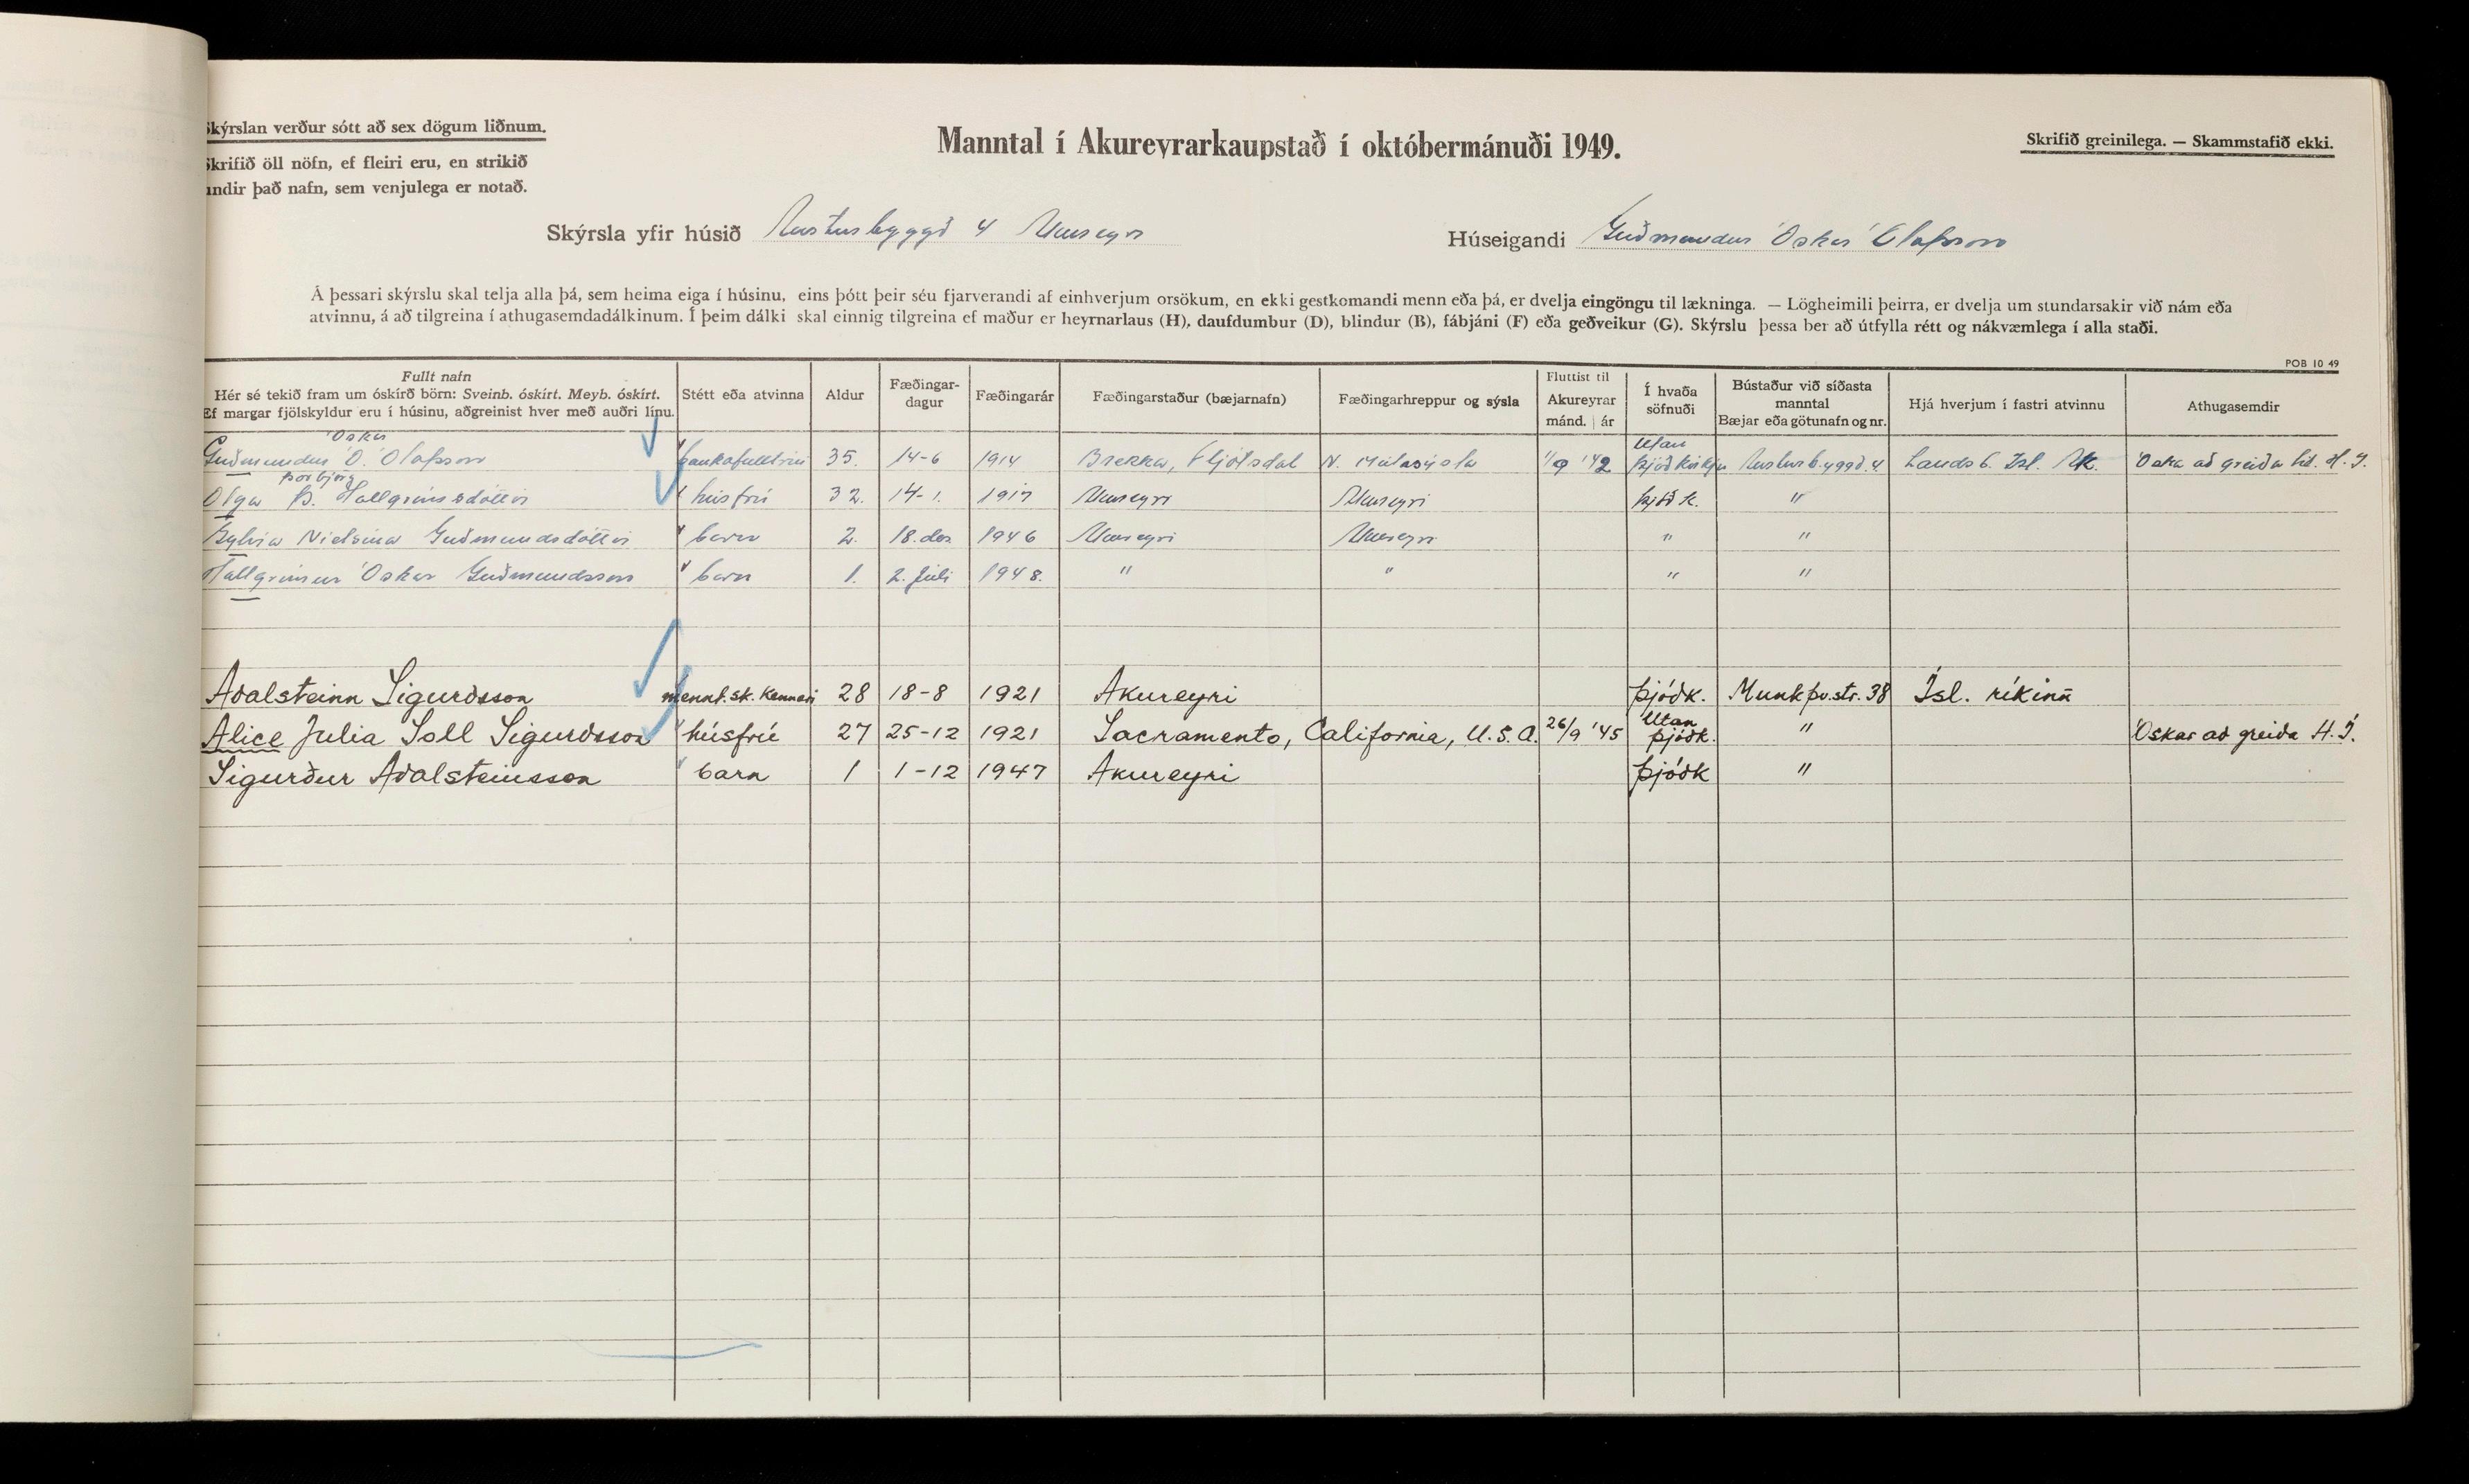 Skýrslan verður sótt að sex dögum liðnum.
Skrifið öll nöfn, ef fleiri eru, en strikið
undir það nafn, sem venjulega er notað.
Manntal í Akureyrarkaupstað í októbermánuði 1949.
Skrifið greinilega. — Skammstafið ekki.
Skýrsla yfir húsið Austurbyggð 4 Akureyri
Húseigandi Guðmundur Óskar Ólafsson
Á þessari skýrslu skal telja alla þá, sem heima eiga í húsinu, eins þótt þeir séu fjarverandi af einhverjum orsökum, en ekki gestkomandi menn eða þá, er dvelja eingöngu til lækninga. — Lögheimili þeirra, er dvelja um stundarsakir við nám eða
atvinnu, á að tilgreina í athugasemdadálkinum. Í þeim dálki skal einnig tilgreina ef maður er heyrnarlaus (H), daufdumbur (D), blindur (B), fábjáni (F) eða geðveikur (G). Skýrslu þessa ber að útfylla rétt og nákvæmlega í alla staði.
POB 10 49
Fullt nafn
Hér sé tekið fram um óskírð börn: Sveinb. óskírt. Meyb. óskírt.
Ef margar fjölskyldur eru í húsinu, aðgreinist hver með auðri línu.
Stétt eða atvinna
Aldur
Fæðingar-
dagur
Fæðingarár
Fæðingarstaður (bæjarnafn)
Fæðingarhreppur og sýsla
Fluttist til
Akureyrar
mánd. | ár
Í hvaða
söfnuði
Bústaður við síðasta
manntal
Bæjar eða götunafn og nr.
Hjá hverjum í fastri atvinnu
Athugasemdir
Óskar Utan
Guðmundur Ó. Ólafsson bankafulltrúi 35. 14-6 1914 Brekka, Fljótsdal N. Múlasýsla 1/9 '42 þjóðkirkju Austurbyggð. 4. Landsb. Ísl. Ak. Óska að greiða til H. Í.
Þorbjörg
Olga Þ. Hallgrímsdóttir húsfrú 32. 14-1. 1917 Akureyri Akureyri þjóðk. "
Sylvia Nielsina Guðmundsdóttir barn 2. 18. des. 1946 Akureyri Akureyri " "
Hallgrímur Óskar Guðmundsson barn 1. 2. Júli 1948. " " " "
Aðalsteinn Sigurðsson mennt.sk. kennari 28 18-8 1921 Akureyri þjóðk. Munkþv.str. 38 Ísl. ríkinu
Utan
Alice Julia Soll Sigurdsson húsfrú 27 25-12 1921 Sacramento, California, U.S.A. 26/9 '45 þjóðk. " Óskar að greiða H.Í.
Sigurður Aðalsteinsson barn 1 1-12 1947 Akureyri þjóðk "